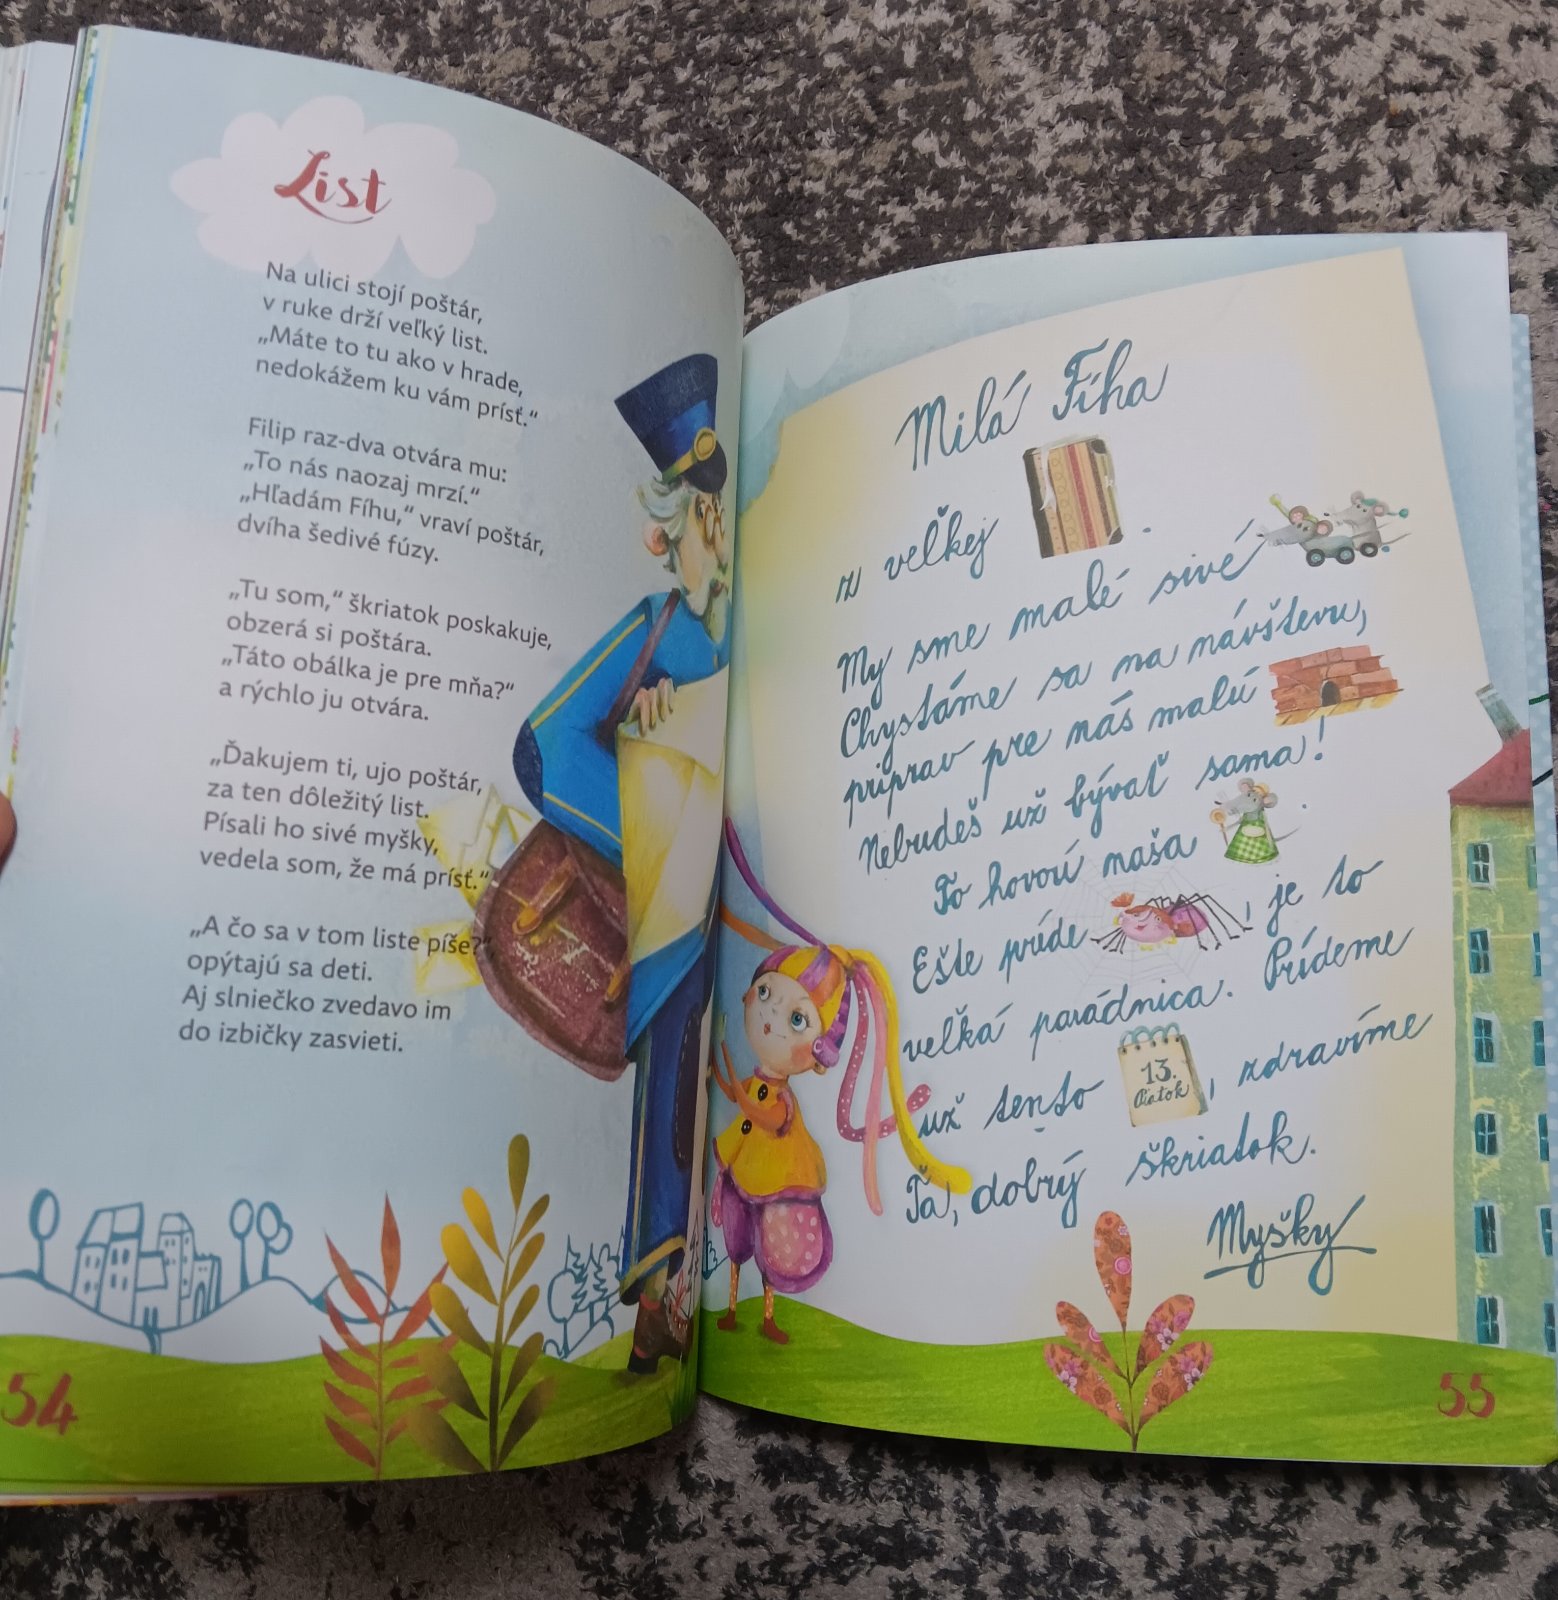 List
Na ulici stojí poštár,
v ruke drží veľký list.
„Máte to tu ako v hrade,
nedokážem ku vám prísť.“
Filip raz-dva otvára mu:
„To nás naozaj mrzí.“
„Hľadám Fíhu,“ vraví poštár,
dvíha šedivé fúzy.
„Tu som,“ škriatok poskakuje,
obzerá si poštára.
„Táto obálka je pre mňa?“
a rýchlo ju otvára.
„Ďakujem ti, ujo poštár,
za ten dôležitý list.
Písali ho sivé myšky,
vedela som, že má prísť.“
„A čo sa v tom liste píše?“
opýtajú sa deti.
Aj slniečko zvedavo im
do izbičky zasvieti.
54
Milá Fíha
z veľkej .
My sme malé sivé
Chystáme sa na návštevu,
priprav pre nás malú
Nebudeš už bývať sama!
To hovorí naša .
Ešte príde , je to
veľká parádnica. Prídeme
už tento 13. Piatok , zdravíme
Ťa, dobrý škriatok.
Myšky
55